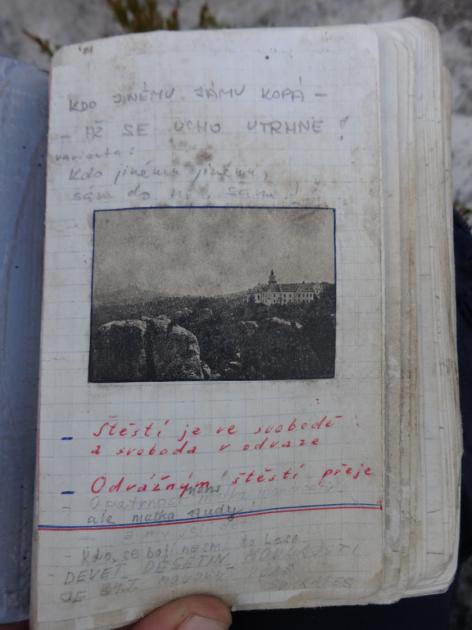 KDO JINÉMU JÁMU KOPÁ –
– AŽ SE UCHO UTRHNE!
varianta:
Kdo jinému jinému,
sám do ní sám!
– Štěstí je ve svobodě
a svoboda v odvaze
– Odvážným štěstí přeje
Opatrnost matka
ale matka nudy!
Kdo se bojí nesmí do lesa
DEVĚT DESETIN MOUDROSTI
JE BÝT